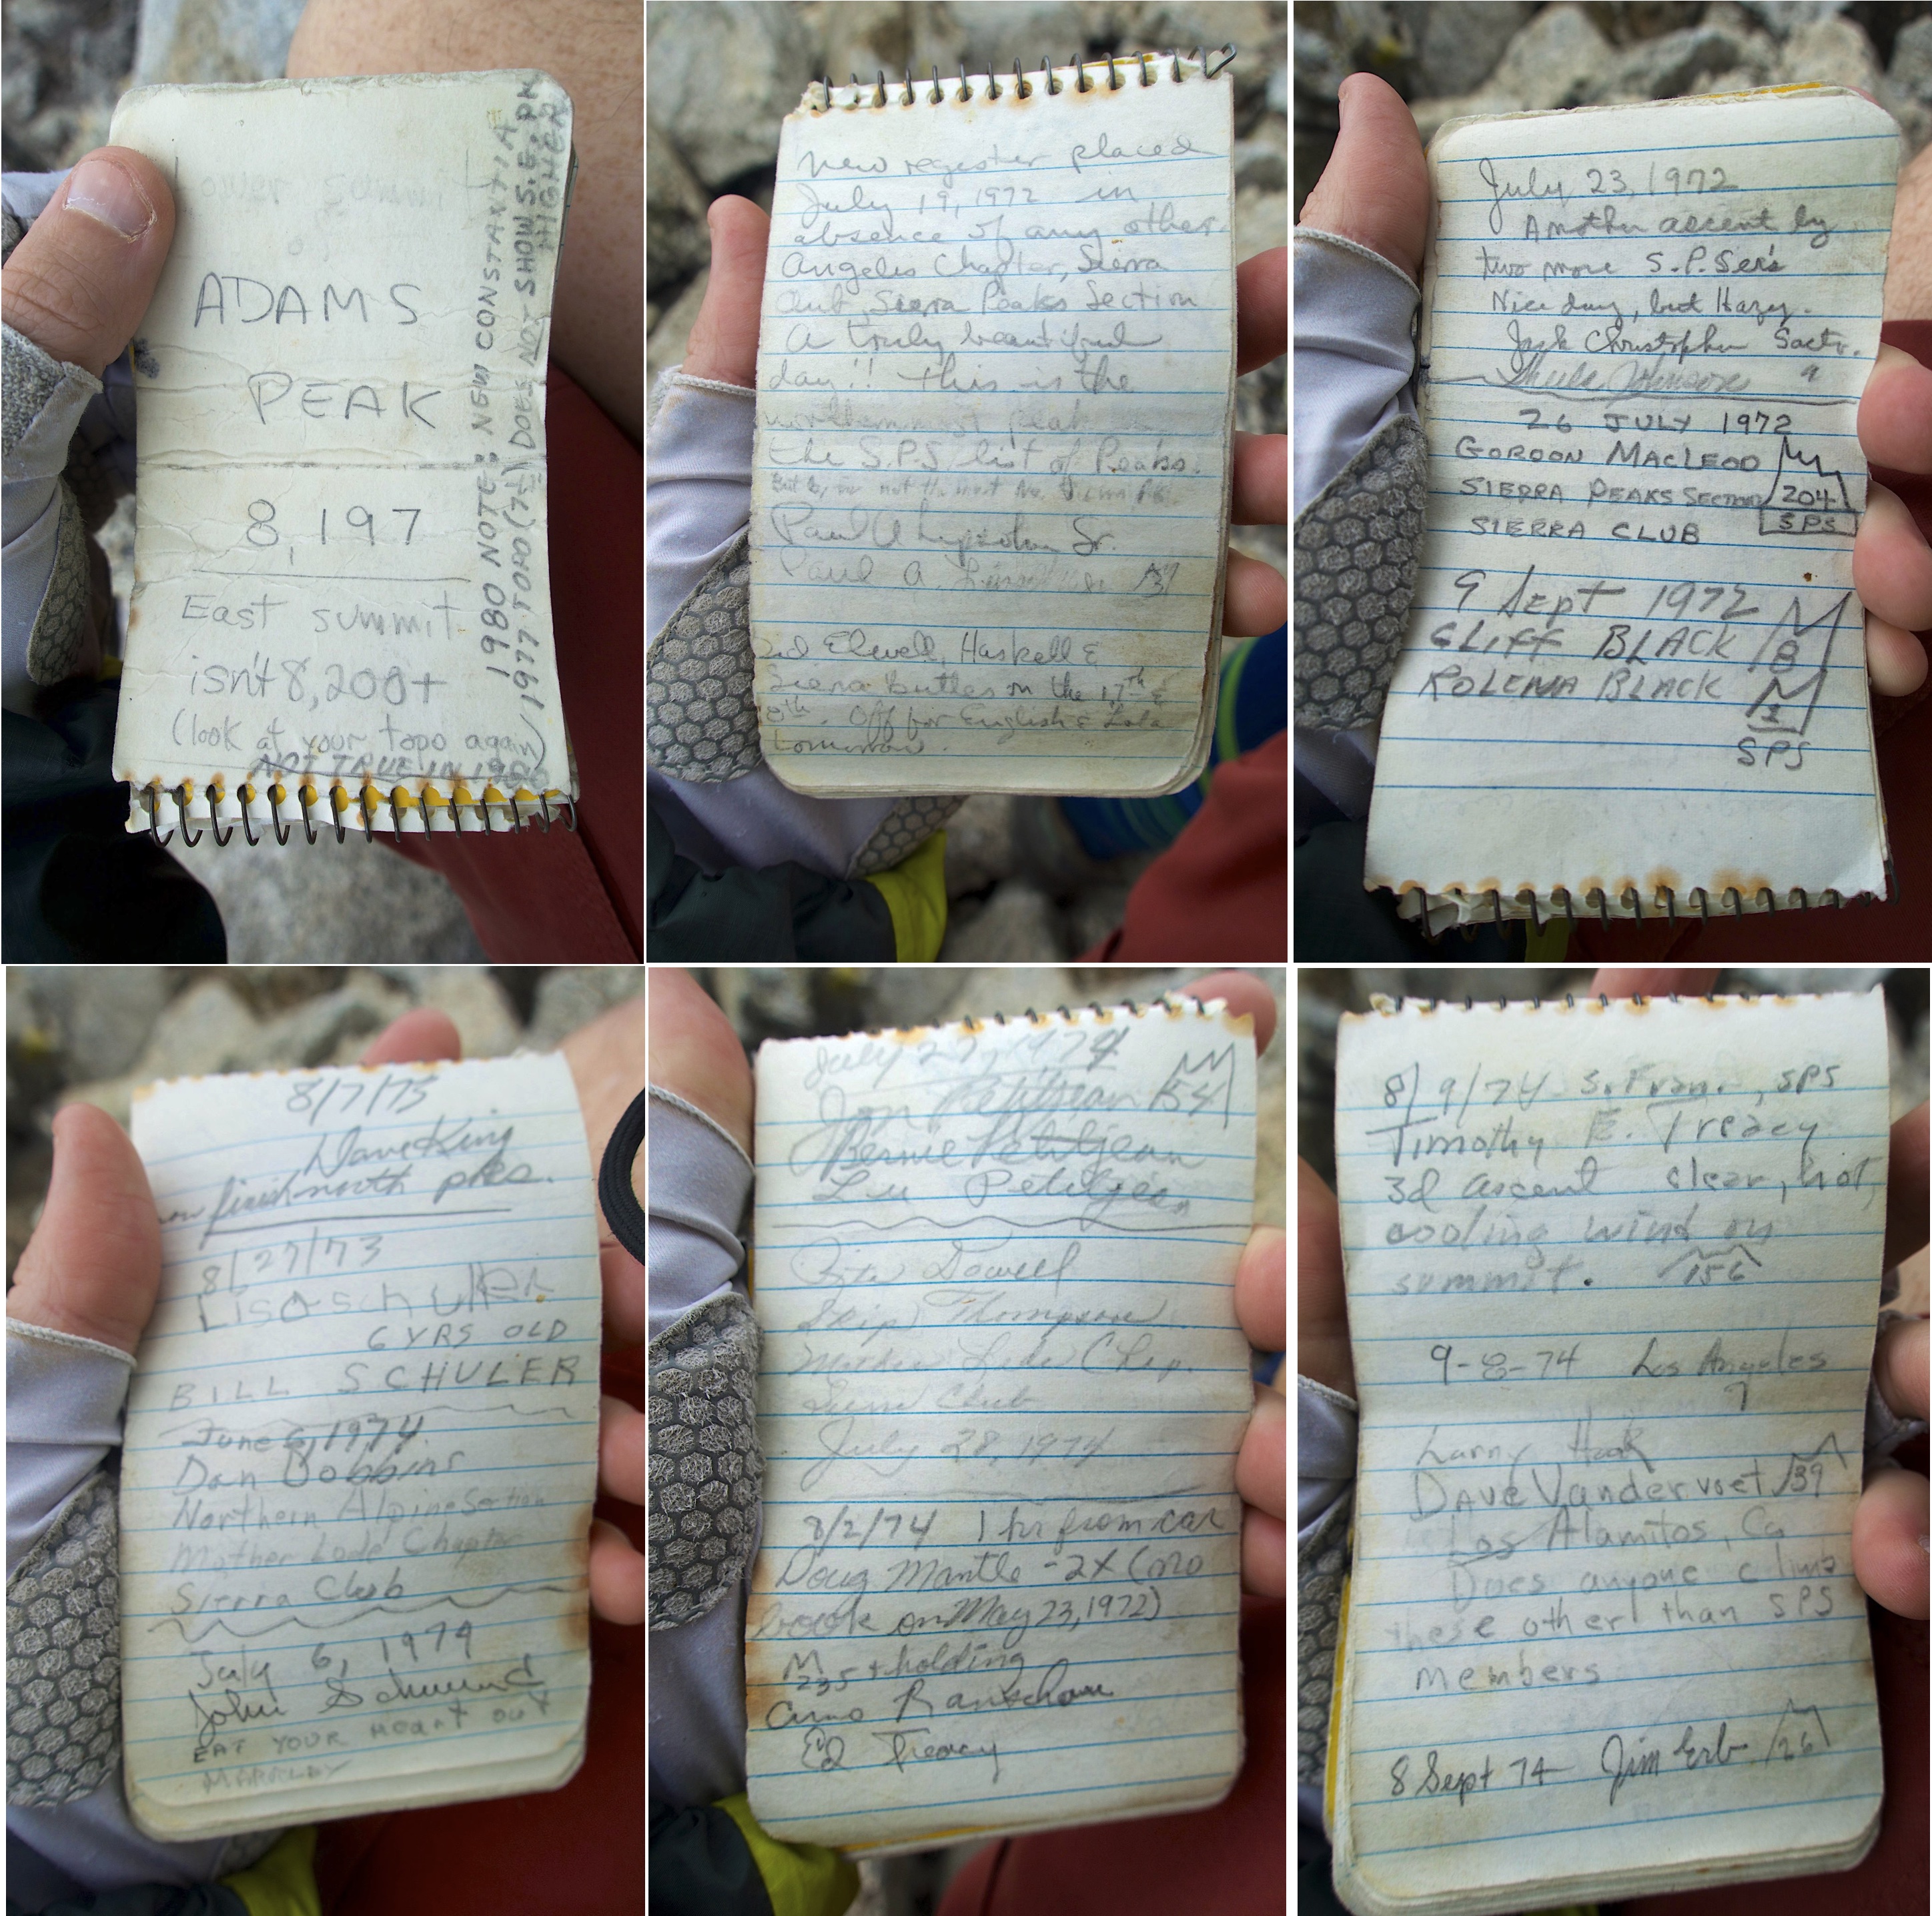 lower summit
of
ADAMS
PEAK
8,197
East summit
isn't 8,200+
(look at your topo again)
NOT TRUE IN 1980
1980 NOTE: NEW CONSTANTIA
1977 TOPO (7½) DOES NOT SHOW S.E. PK
HIGHER
New register placed
July 19, 1972 in
absence of any other.
Angeles Chapter, Sierra
Club, Sierra Peaks Section
A truly beautiful
day!! This is the
northernmost peak
the S.P.S list of Peaks.
not the most
Paul A Sr.
Paul A.
Did Elwell, Haskell &
Sierra Buttes on the 17th &
8th. Off for English & Lola
tomorrow.
July 23, 1972
Another ascent by
two more S.P.Ser's
Nice day, but Hazy.
Jack Christopher Sacto.
Johnson
26 JULY 1972
GORDON MACLEOD
SIERRA PEAKS SECTION 204
SIERRA CLUB SPS
9 Sept 1972
CLIFF BLACK M 8
ROLENA BLACK M 1
SPS
8/7/73
Dave King
now finish north pks.
8/27/73
Lisa Schuler
6 YRS OLD
BILL SCHULER
June 6, 1974
Dan Dobbins
Northern Alpine Section
Mother Lode Chapter
Sierra Club
July 6, 1974
John
EAT YOUR HEART OUT
July 27, 1974
Jon Petitjean 54
Bernie Petitjean
Lu Petitjean
Pete Dowell
Skip Thompson
Mother Lode Chap.
Sierra Club
July 28, 1974
8/2/74 1 hr from car
Doug Mantle - 2X (no
book on May 23, 1972)
M 235 + holding
Ed Treacy
8/9/74 S. Fran., SPS
Timothy E. Treacy
3d ascent clear, hot,
cooling wind on
summit. 156
9-8-74 Los Angeles
Larry Hoak
Dave Vandervoet 39
Los Alamitos, Ca
Does anyone climb
these other than SPS
members
8 Sept 74 Jim Erb 26